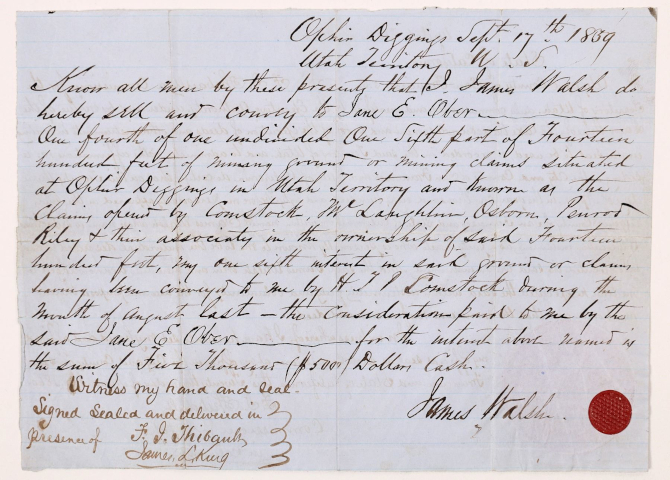 Ophir Diggings Sept. 17th 1859
Utah Territory U. S.
Know all men by these presents that I, James Walsh do
hereby sell and convey to Jane E. Ober
One fourth of one undivided One Sixth part of Fourteen
hundred feet of mining ground or mining claims situated
at Ophir Diggings in Utah Territory and known as the
Claims opened by Comstock, McLaughlin, Osborn, Penrod
Riley & their associates in the ownership of said Fourteen
hundred feet, my one sixth interest in said ground or claims
having been conveyed to me by H T P Comstock during the
month of august last – the consideration paid to me by the
said Jane E Ober for the interest above named is
the sum of Five Thousand ($5000) Dollars Cash.
Witness my hand and seal.
Signed Sealed and delivered in
presence of F. J. Thibault
James L. King
James Walsh.